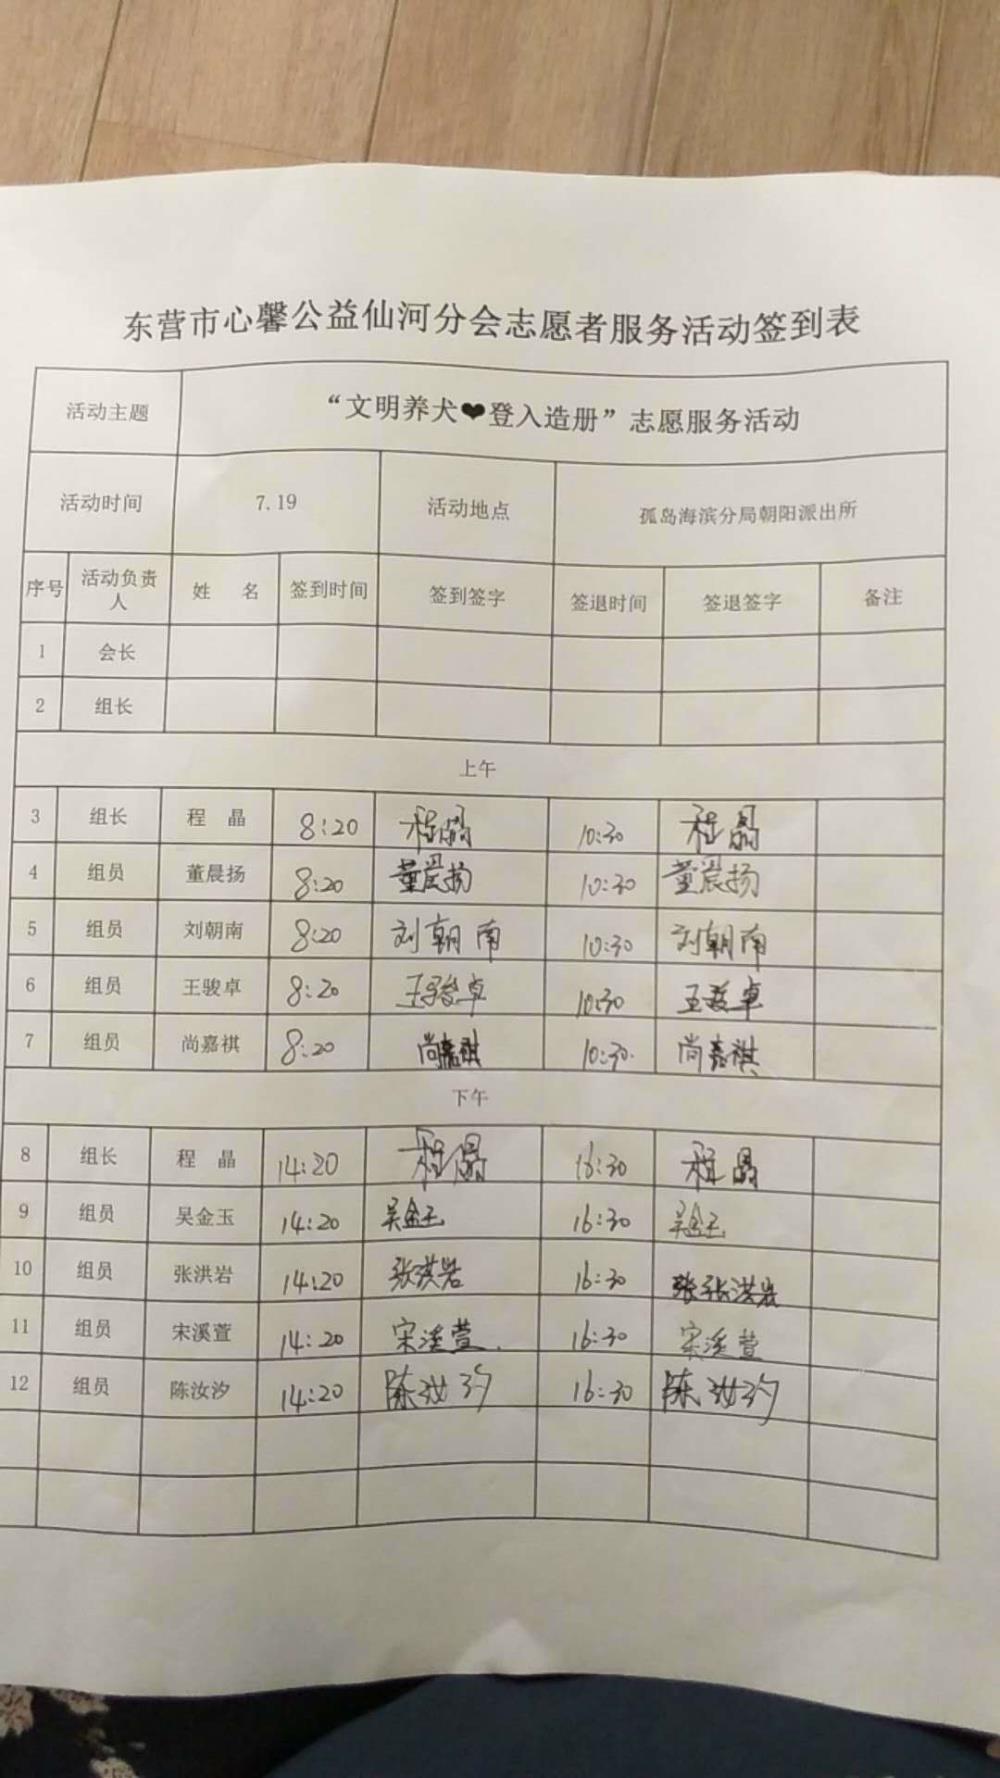 东营市心馨公益仙河分会志愿者服务活动签到表
活动主题 “文明养犬❤登入造册”志愿服务活动
活动时间 7.19 活动地点 孤岛海滨分局朝阳派出所
序号 活动负责人 姓 名 签到时间 签到签字 签退时间 签退签字 备注
1 会长
2 组长
上午
3 组长 程 晶 8:20 程晶 10:30 程晶
4 组员 董晨扬 8:20 董晨扬 10:30 董晨扬
5 组员 刘朝南 8:20 刘朝南 10:30 刘朝南
6 组员 王骏卓 8:20 王骏卓 10:30 王骏卓
7 组员 尚嘉祺 8:20 尚嘉祺 10:30 尚嘉祺
下午
8 组长 程 晶 14:20 程晶 16:30 程晶
9 组员 吴金玉 14:20 吴金玉 16:30 吴金玉
10 组员 张洪岩 14:20 张洪岩 16:30 张张洪岩
11 组员 宋溪萱 14:20 宋溪萱 16:30 宋溪萱
12 组员 陈汝汐 14:20 陈汝汐 16:30 陈汝汐